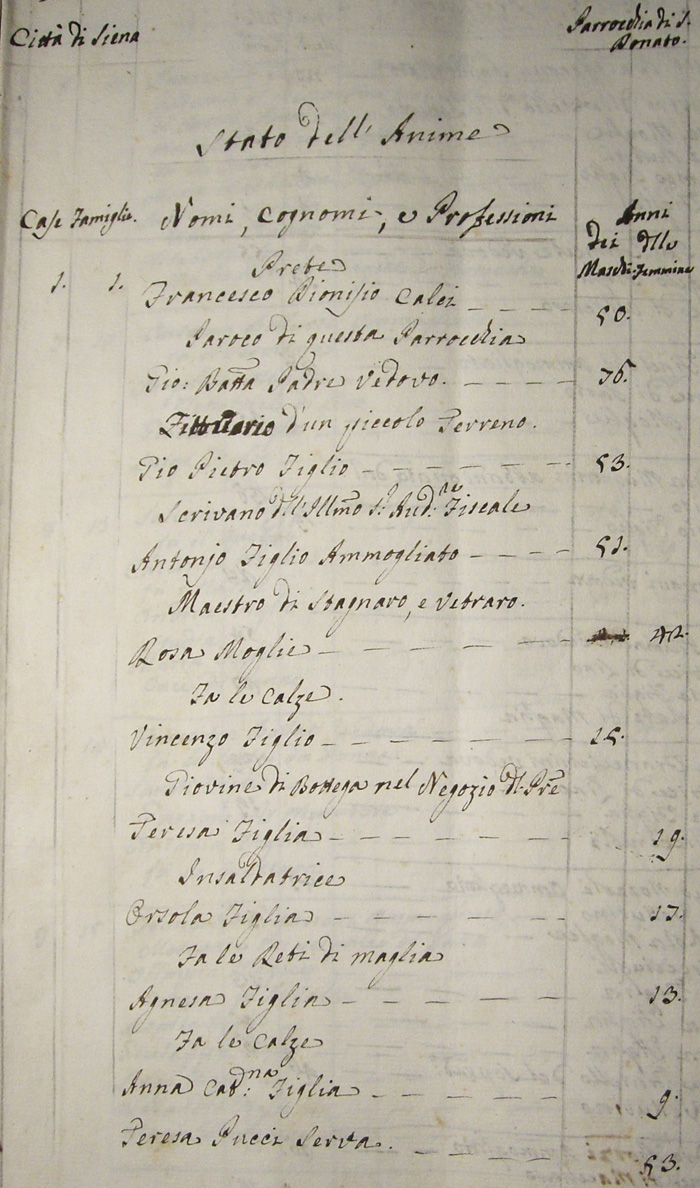 Città di Siena
Parrocchia di S.
Donato.
Stato dell' Anime
Case Famiglie. Nomi, Cognomi, e Professioni
Anni
dei delle
Maschi Femmine
Prete
1. 1. Francesco Dionisio Calci 50.
Paroco di questa Parrocchia
Gio: Batta Padre Vedovo. 76.
Fittuario d'un piccolo Terreno.
Gio Pietro Figlio 53.
Scrivano dell'Illmo S.r Aud.re Fiscale
Antonjo Figlio Ammogliato 51.
Maestro di Stagnaro, e Vetraro.
Rosa Moglie 42.
Fa le Calze.
Vincenzo Figlio 15.
Giovine di Bottega nel Negozio del Pre
Teresa Figlia 19.
Insaldatrice
Orsola Figlia 17.
Fa le Reti di maglia
Agnesa Figlia 13.
Fa le Calze
Anna Cat:na Figlia 9.
Teresa Pucci Serva. 53.